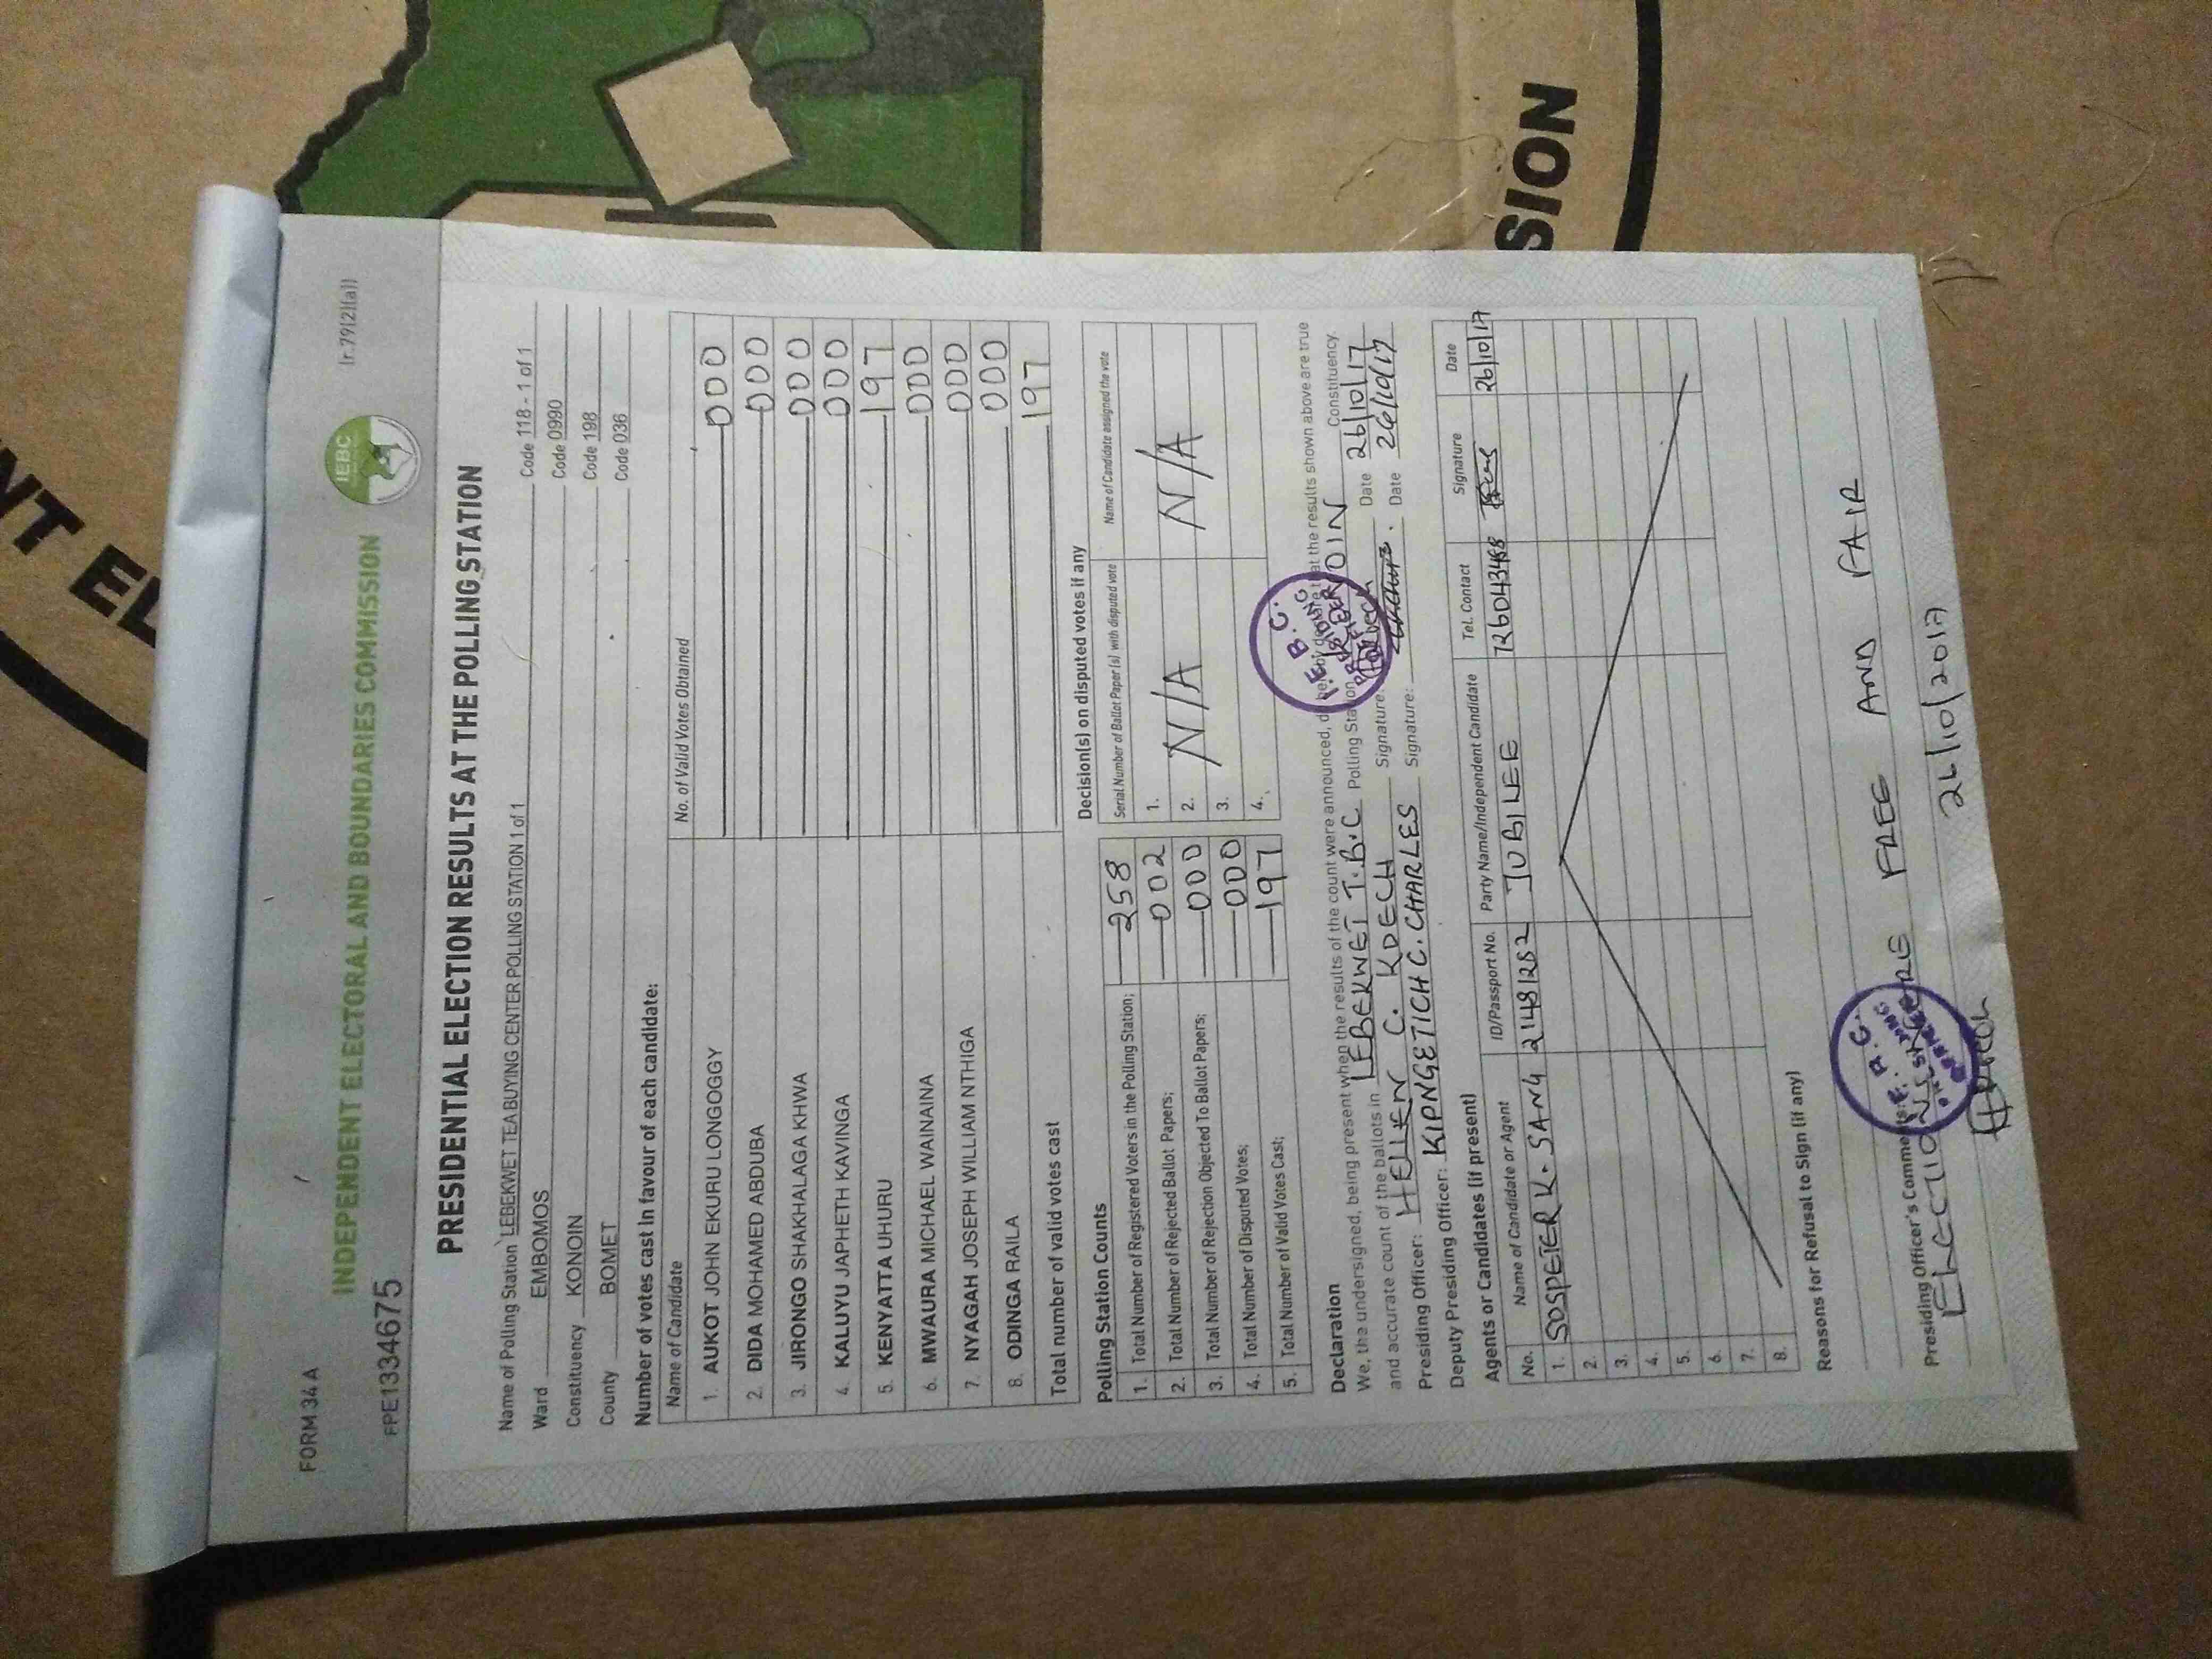 FORM 34 A
(r.79(2)(a))
IEBC
INDEPENDENT ELECTORAL AND BOUNDARIES COMMISSION
PPE1334675
PRESIDENTIAL ELECTION RESULTS AT THE POLLING STATION
Name of Polling Station LEBEKWET TEA BUYING CENTER POLLING STATION 1 of 1 Code 118 - 1 of 1
Ward EMBOMOS Code 0990
Constituency KONOIN Code 198
County BOMET Code 036
Number of votes cast in favour of each candidate:
Name of Candidate No. of Valid Votes Obtained
1. AUKOT JOHN EKURU LONGOGGY 000
2. DIDA MOHAMED ABDUBA 000
3. JIRONGO SHAKHALAGA KHWA 000
4. KALUYU JAPHETH KAVINGA 000
5. KENYATTA UHURU 197
6. MWAURA MICHAEL WAINAINA 000
7. NYAGAH JOSEPH WILLIAM NTHIGA 000
8. ODINGA RAILA 000
Total number of valid votes cast 197
Polling Station Counts
1. Total Number of Registered Voters in the Polling Station; 258
2. Total Number of Rejected Ballot Papers; 002
3. Total Number of Rejection Objected To Ballot Papers; 000
4. Total Number of Disputed Votes; 000
5. Total Number of Valid Votes Cast; 197
Decision(s) on disputed votes if any
Serial Number of Ballot Paper(s) with disputed vote Name of Candidate assigned the vote
1.
2. N/A N/A
3.
4.
Declaration
We, the undersigned, being present when the results of the count were announced, do hereby declare that the results shown above are true
and accurate count of the ballots in LEBEKWET T.B.C Polling Station KONOIN Constituency.
Presiding Officer: HELLEN C. KOECH Signature: Date 26/10/17
Deputy Presiding Officer: KIPNGETICH C. CHARLES Signature: Date 26/10/17
I.E.B.C. PRESIDING OFFICER
Agents or Candidates (if present)
No. Name of Candidate or Agent ID/Passport No. Party Name/Independent Candidate Tel. Contact Signature Date
1. SOSPETER K. SANG 21481282 JUBILEE 726043468 26/10/17
2.
3.
4.
5.
6.
7.
8.
Reasons for Refusal to Sign (if any)
Presiding Officer's Comments:
ELECTIONS WERE FREE AND FAIR
26/10/2017
NT EL
SION